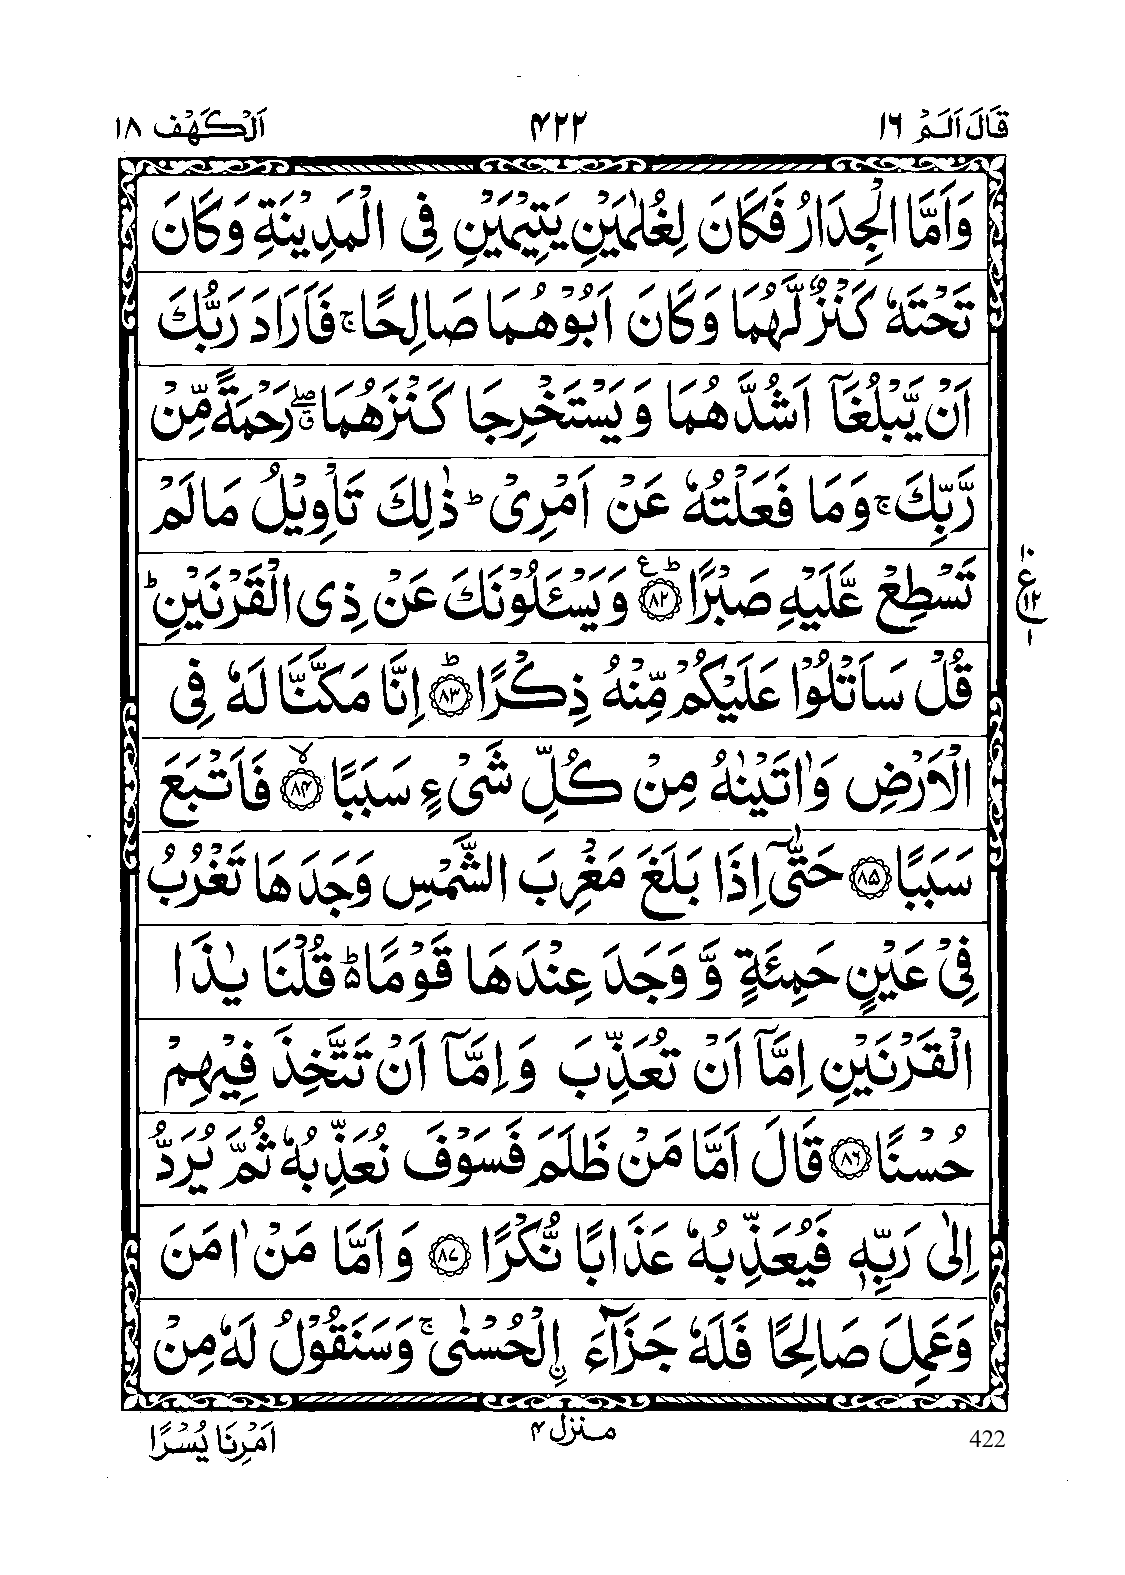 قَالَ اَلَمْ ١٦
۴۲۲
اَلْكَهْف ١٨
وَاَمَّا الْجِدَارُ فَكَانَ لِغُلٰمَيْنِ يَتِيْمَيْنِ فِى الْمَدِيْنَةِ وَكَانَ
تَحْتَهٗ كَنْزٌ لَّهُمَا وَكَانَ اَبُوْهُمَا صَالِحًا ۚ فَاَرَادَ رَبُّكَ
اَنْ يَّبْلُغَاۤ اَشُدَّهُمَا وَيَسْتَخْرِجَا كَنْزَهُمَا ۖۗ رَحْمَةً مِّنْ
رَّبِّكَ ۚ وَمَا فَعَلْتُهٗ عَنْ اَمْرِىْ ؕ ذٰلِكَ تَاْوِيْلُ مَالَمْ
تَسْطِعْ عَّلَيْهِ صَبْرًا ؕع ﴿۸۲﴾ وَيَسْـَٔلُوْنَكَ عَنْ ذِى الْقَرْنَيْنِ ؕ
١٠
ع
١٢
١
قُلْ سَاَتْلُوْا عَلَيْكُمْ مِّنْهُ ذِكْرًا ؕ ﴿۸۳﴾ اِنَّا مَكَّنَّا لَهٗ فِى
الْاَرْضِ وَاٰتَيْنٰهُ مِنْ كُلِّ شَىْءٍ سَبَبًا ۙ ﴿۸۴﴾ فَاَتْبَعَ
سَبَبًا ﴿۸۵﴾ حَتّٰٓى اِذَا بَلَغَ مَغْرِبَ الشَّمْسِ وَجَدَهَا تَغْرُبُ
فِىْ عَيْنٍ حَمِئَةٍ وَّ وَجَدَ عِنْدَهَا قَوْمًا ؕ۬ قُلْنَا يٰذَا
الْقَرْنَيْنِ اِمَّاۤ اَنْ تُعَذِّبَ وَاِمَّاۤ اَنْ تَتَّخِذَ فِيْهِمْ
حُسْنًا ﴿۸۶﴾ قَالَ اَمَّا مَنْ ظَلَمَ فَسَوْفَ نُعَذِّبُهٗ ثُمَّ يُرَدُّ
اِلٰى رَبِّهٖ فَيُعَذِّبُهٗ عَذَابًا نُّكْرًا ﴿۸۷﴾ وَاَمَّا مَنْ اٰمَنَ
وَعَمِلَ صَالِحًا فَلَهٗ جَزَآءَ ۨالْحُسْنٰى ۚ وَسَنَقُوْلُ لَهٗ مِنْ
422
منزل ۴
اَمْرِنَا يُسْرًا